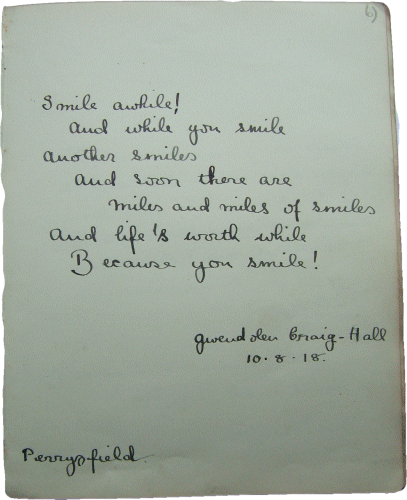 6)
Smile awhile!
And while you smile
another smiles
And soon there are
miles and miles of smiles
And life's worth while
Because you smile!
Gwendolen Craig-Hall
10.8.18.
Perrysfield.